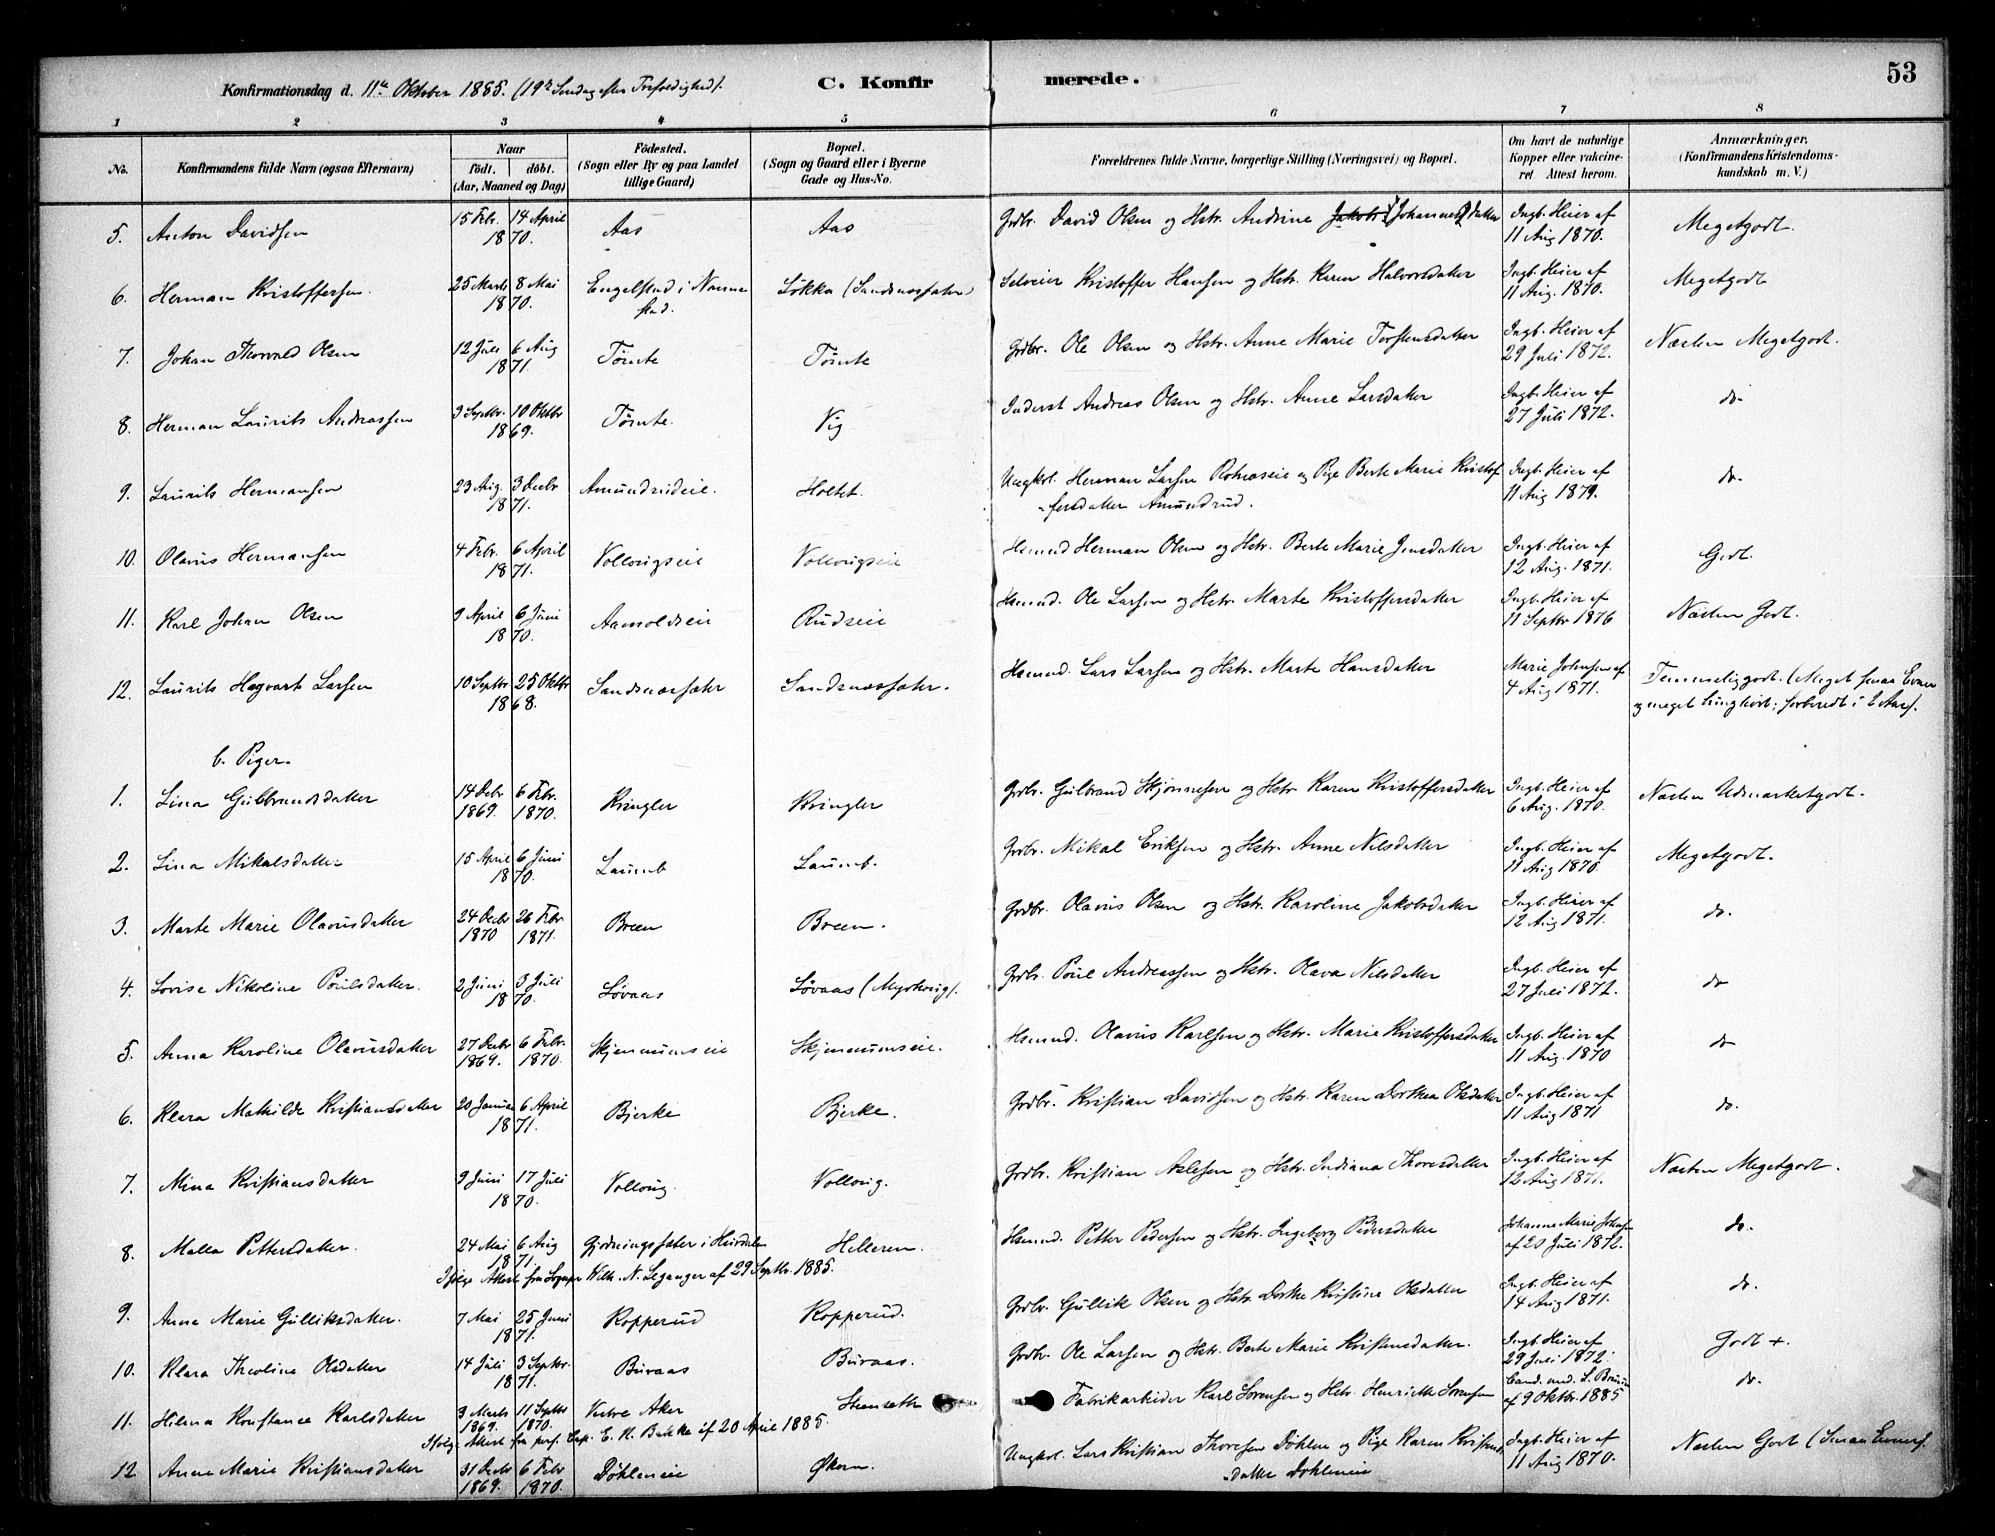 Konfirmationsdag d. 11te Oktober 1885. (19de Søndag efter Trefoldighed).
C. Konfirmerede.
53
1 2 3 4 5 6 7 8
No. Konfirmandens fulde Navn (ogsaa Efternavn) Naar født. døbt. (Aar, Maaned og Dag) Födested. (Sogn eller By og paa Landet tillige Gaard) Bopæl. (Sogn og Gaard eller i Byerne Gade og Hus-No. Forældrenes fulde Navne, borgerlige Stilling (Næringsvei) og Bopæl. Om havt de naturlige Kopper eller vakcineret. Attest herom. Anmærkninger. (Konfirmandens Kristendomskundskab m. V.)
5. Anton Davidsen 15 Febr. 14 April 1870. Aas Aas Grdbr. David Olsen og Hstr. Andrine Jakobs (Johannes) datter Ingb. Heier af 11 Aug 1870. Megetgodt.
6. Herman Kristoffersen. 25 Marts 8 Mai 1870. Engelstad i Nannestad. Løkka (Sandsnessæter) Selveier Kristoffer Hansen og Hstr. Karen Halvorsdatter Ingb. Heier af 11 Aug. 1870. Megetgodt
7. Johan Thorvald Olsen 12 Juli 6 Aug 1871. Tømte Tømte Grdbr. Ole Olsen og Hstr. Anne Marie Torstensdatter Ingb. Heier af 29 Juli 1872. Næsten Megetgodt.
8. Herman Laurits Andreassen 3 Septbr. 10 Oktbr 1869. Tømte. Vig Inderst Andreas Olsen og Hstr. Anne Larsdatter Ingb. Heier af 27 Juli 1872. do
9. Laurits Hermansen 23 Aug. 3 Decbr 1871. Amundrudeie. Holtet. Ungkl. Herman Larsen og Pige Berte Marie Kristoffersdatter Amundrud. Ingb. Heier af 11 Aug 1879. do.
10. Olaus Hermansen 4 Febr. 6 April 1871. Vollaugseie Vollaugseie Hsmnd Herman Olsen og Hstr. Berte Marie Jensdatter Ingb. Heier af 12 Aug. 1871. Godt.
11. Karl Johan Olsen 9 April 6 Juni 1870. Aamoldseie Rudseie Hsmnd. Ole Larsen og Hstr. Marte Kristoffersdatter Ingb. Heier af 11 Septbr 1876 Næsten Godt.
12. Laurits Hagvart Larsen 10 Septbr 25 Oktbr 1868. Sandsnessæter Sandsnessæter. Hsmnd. Lars Larsen og Hstr. Marte Hansdatter Marie Johnsen af 4 Aug 1871. Temmeliggodt. (Meget smaa Evner og meget tunghørt; forberedt i 2 Aar).
b. Piger.
1. Lina Gulbrandsdatter 14 Decbr 1869. 6 Febr. 1870. Kringler Kringler Grdbr. Gulbrand Skjønnesen og Hstr. Karen Kristoffersdatter Ingb. Heier af 6 Aug. 1870. Næsten Udmærketgodt.
2. Lina Mikalsdatter 15 April 6 Juni 1870. Laumb Laumb. Grdbr. Mikal Eriksen og Hstr. Anne Nilsdatter Ingb. Heier af 11 Aug 1870. Megetgodt.
3. Marte Marie Olausdatter 24 Decbr 1870 26 Febr 1871. Breen Breen. Grdbr. Olaus Olsen og Hstr. Karoline Jakobsdatter Ingb. Heier af 12 Aug 1871. do.
4. Lovise Nikoline Poulsdatter. 2 Juni 3 Juli 1870. Løvaas Løvaas (Myrhaug). Grdbr. Poul Andreassen og Hstr. Olava Nilsdatter Ingb. Heier af 27 Juli 1872. do
5. Anna Karoline Olausdatter 27 Decbr 1869. 6 Febr. 1870. Skjennumseie Skjennumseie. Hsmnd. Olaus Karlsen og Hstr. Marie Kristoffersdatter Ingb. Heier af 11 Aug. 1870 do
6. Klara Mathilde Kristiansdatter 20 Januar 6 April 1871. Bjerke Bjerke. Grdbr. Kristian Davidsen og Hstr. Karen Dorthea Olsdatter Ingb. Heier af 11 Aug 1871 do.
7. Mina Kristiansdatter 9 Juni 17 Juli 1870. Vollaug. Vollaug. Grdbr. Kristian Axelsen og Hstr. Indiana Thoresdatter Ingb. Heier af 12 Aug 1871. Næsten Megetgodt.
8. Malla Pettersdatter. 24 Mai 6 Aug 1871. Gjødningssæter i Hurdalen Helleren. Hsmnd. Petter Pedersen og Hstr. Ingeborg Pedersdatter Johanne Marie Johnsen af 20 Juli 1872. do.
Ifølge Attest fra Sognepr Wilh. N. Leganger af 29 Septbr. 1885.
9. Anne Marie Gulliksdatter. 7 Mai 25 Juni 1871. Kopperud Kopperud. Grdbr. Gullik Olsen og Hstr. Dorthe Kristine Olsdatter Ingb. Heier af 14 Aug 1871. do.
10. Klara Theoline Olsdatter 14 Juli 3 Septbr. 1871. Buraas Buraas. Grdbr. Ole Larsen og Hstr. Berte Marie Kristensdatter. Ingb. Heier af 29 Juli 1872. Godt +.
11. Hilma Konstance Karlsdatter 3 Marts 1869. 11 Septbr 1870. Vestre Aker Stenseth Fabrikarbeider Karl Sørensen og Hstr. Henriette Sørensen Cand. med. L. af 9 Oktbr. 1885 do.
Ifølg. Attest fra pers. Cap. E. N. Bakke af 20 April 1885.
12 Anne Marie Kristiansdatter 31 Decbr 1869. 6 Febr 1870. Döhleneie Økern. Ungkl. Lars Kristian Thoresen Döhlen og Pige Karen Kristensdatter Döhleneie Ingb. Heier af 11 Aug 1870. Næsten Godt (Smaa Evner).